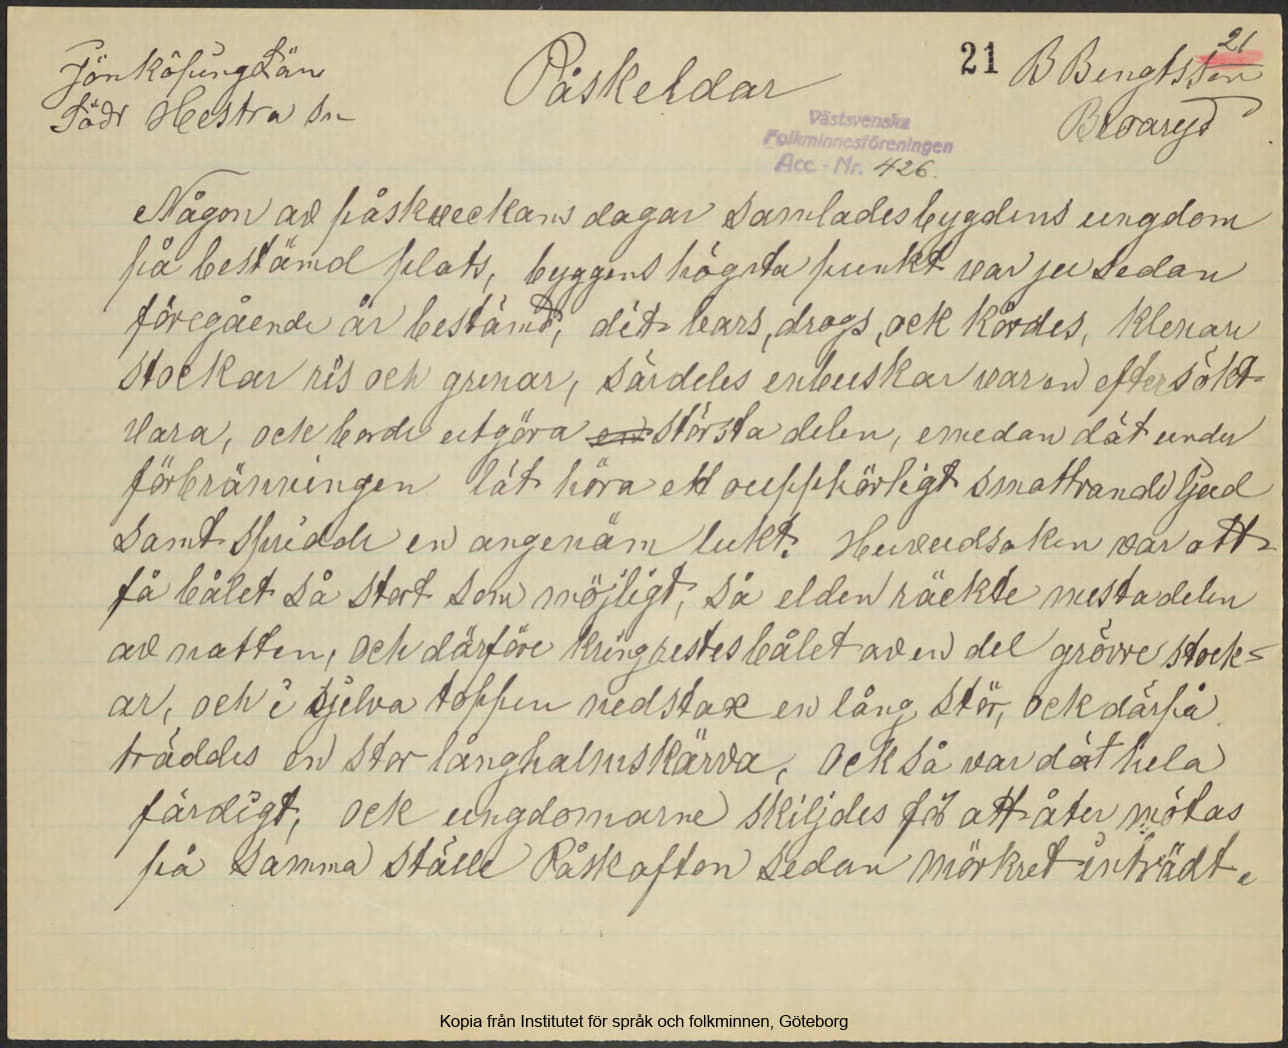 Jönköping Län
Södr Hestra sn
Påskeldar
21
21
B Bengtsson
Bwaryd
Västsvenska
Folkminnesföreningen
Acc.-Nr. 426.
Någon av påskveckans dagar samlades bygdens ungdom
på bestämd plats, byggens högsta punkt var ju sedan
föregående år bestämd, dit bars, drogs, ock kördes, klenare
stockar ris och grenar, särdeles enbuskar var en eftersökt
vara, ock borde utgöra en största delen, emedan dät under
förbränningen lät höra ett oupphörligt smattrande ljud
samt spridde en angenäm lukt. Huvudsaken var att
få bålet så stort som möjligt, så elden räckte mesta delen
av natten, och därföre kringrestes bålet av en del grövre stock-
ar, och i sjelva toppen nedstax en lång stör, ock därpå
träddes en stor långhalmskärva, ock så var dät hela
färdigt, ock ungdomarne skiljdes för att åter mötas
på samma ställe Påskafton sedan mörkret inträdt.
Kopia från Institutet för språk och folkminnen, Göteborg